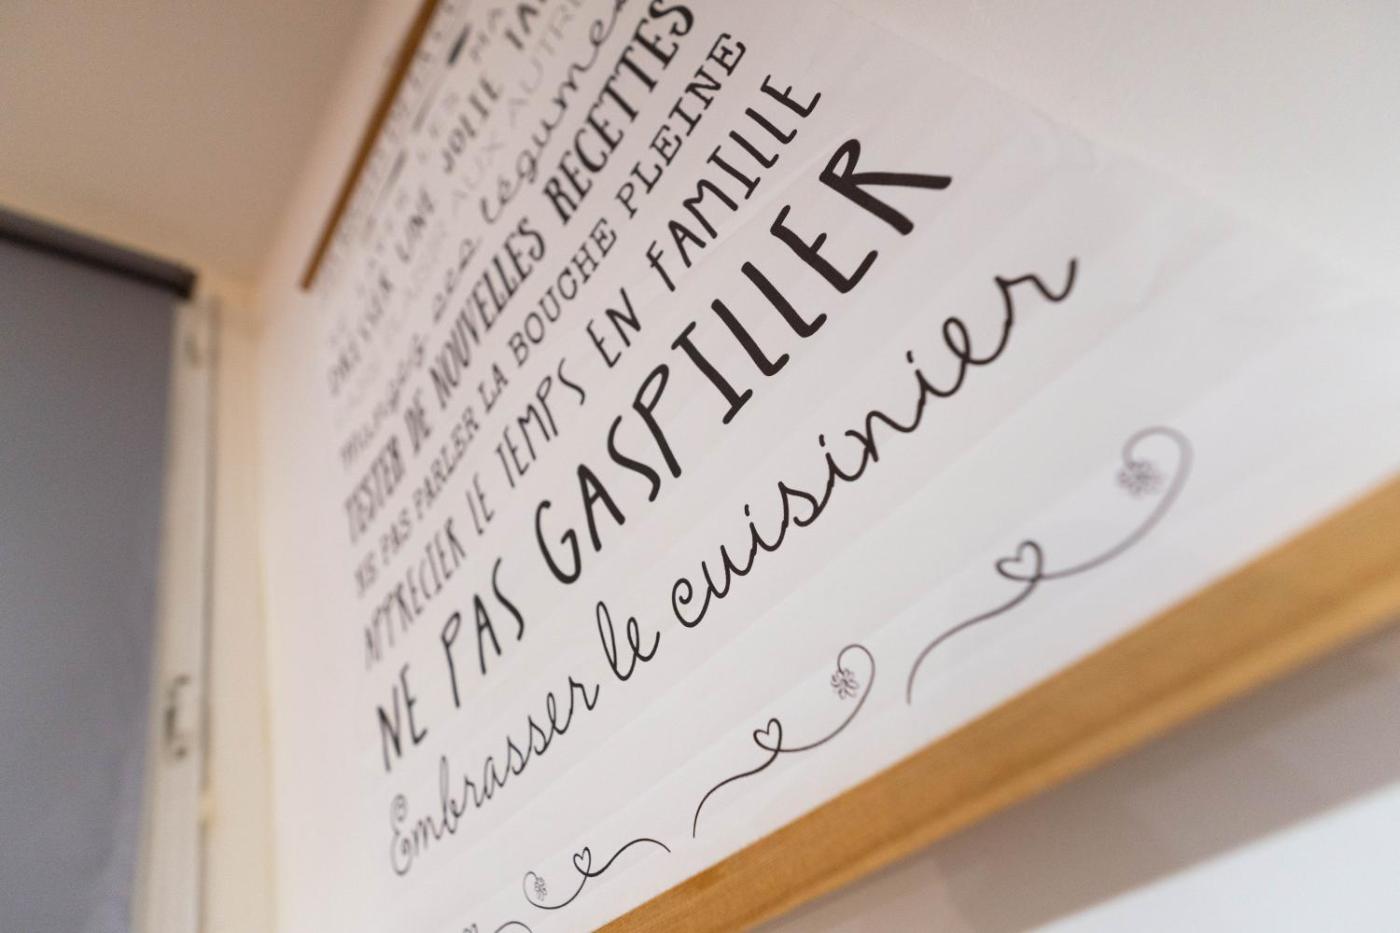 JOLIE
AUX AUTRES
Manger ces légumes
TESTER DE NOUVELLES RECETTES
NE PAS PARLER LA BOUCHE PLEINE
APPRECIER LE TEMPS EN FAMILLE
NE PAS GASPILLER
Embrasser le cuisinier